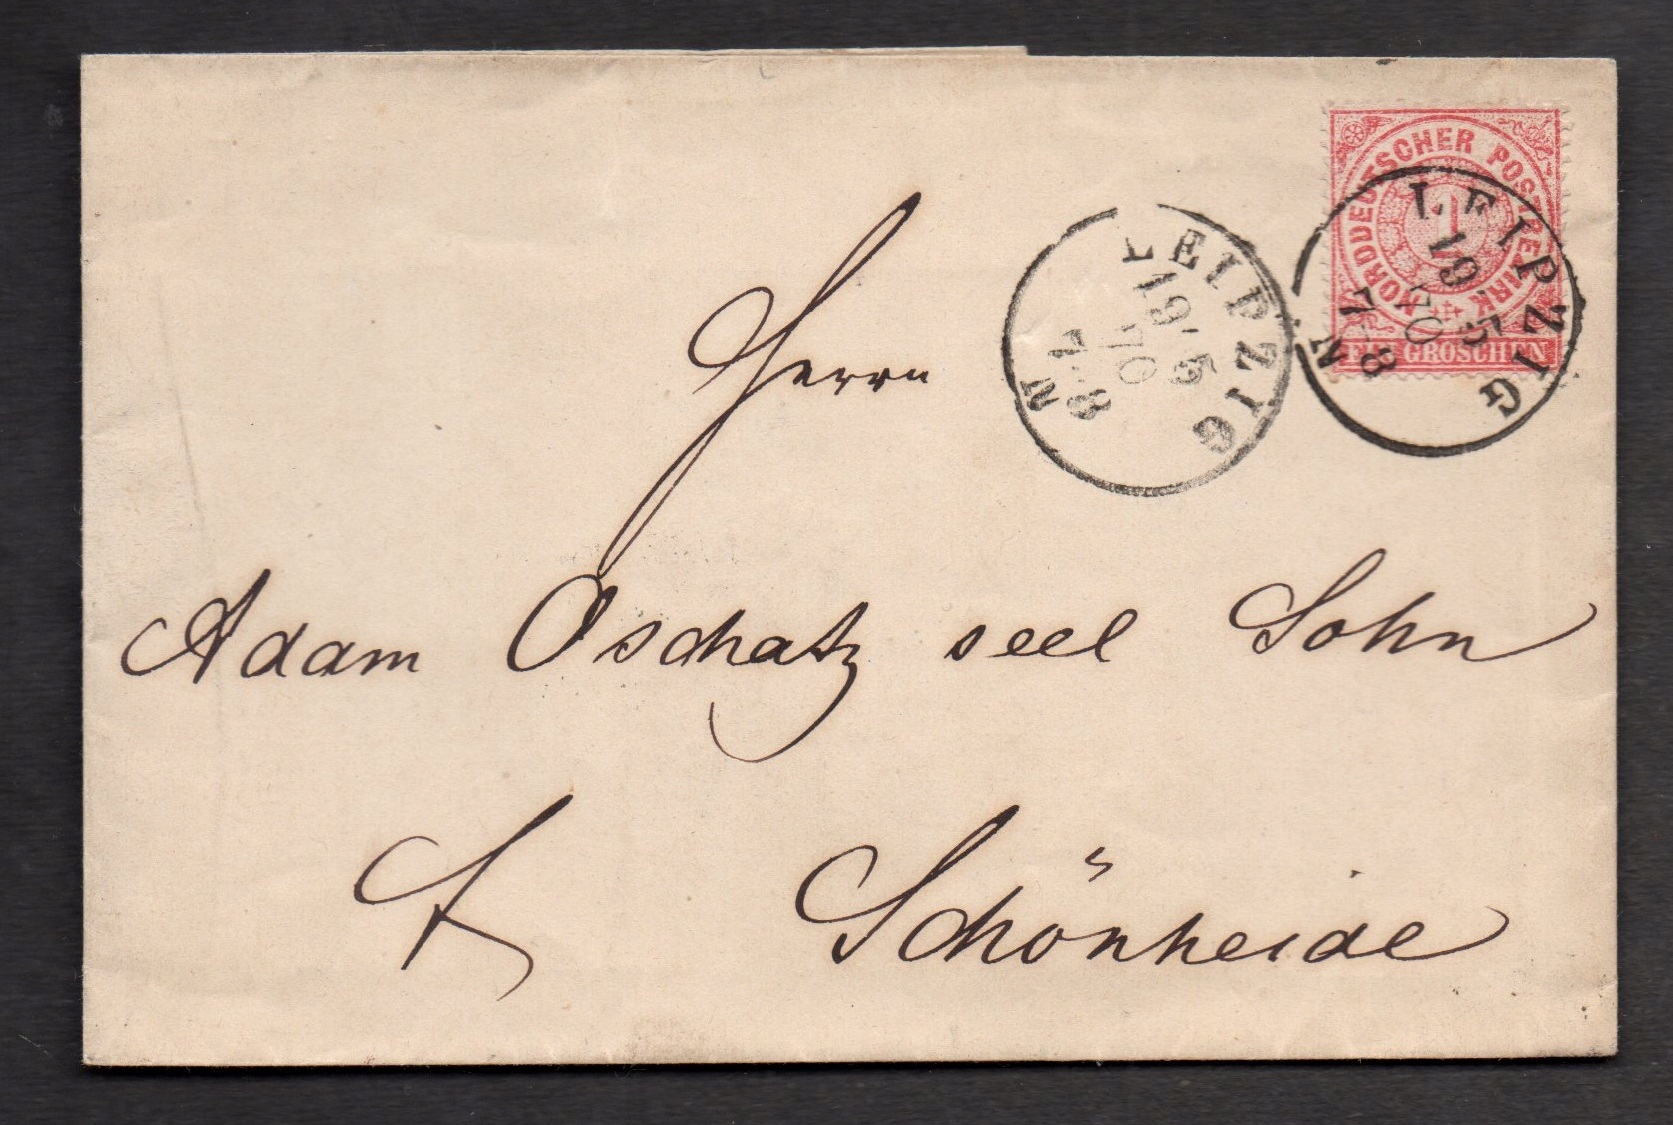 NORDDEUTSCHER POSTBEZIRK
1
EIN GROSCHEN
LEIPZIG
19 5
70
7-8
N
LEIPZIG
19 5
70
7-8
N
Herrn
Adam Oschatz seel Sohn
Schönheide